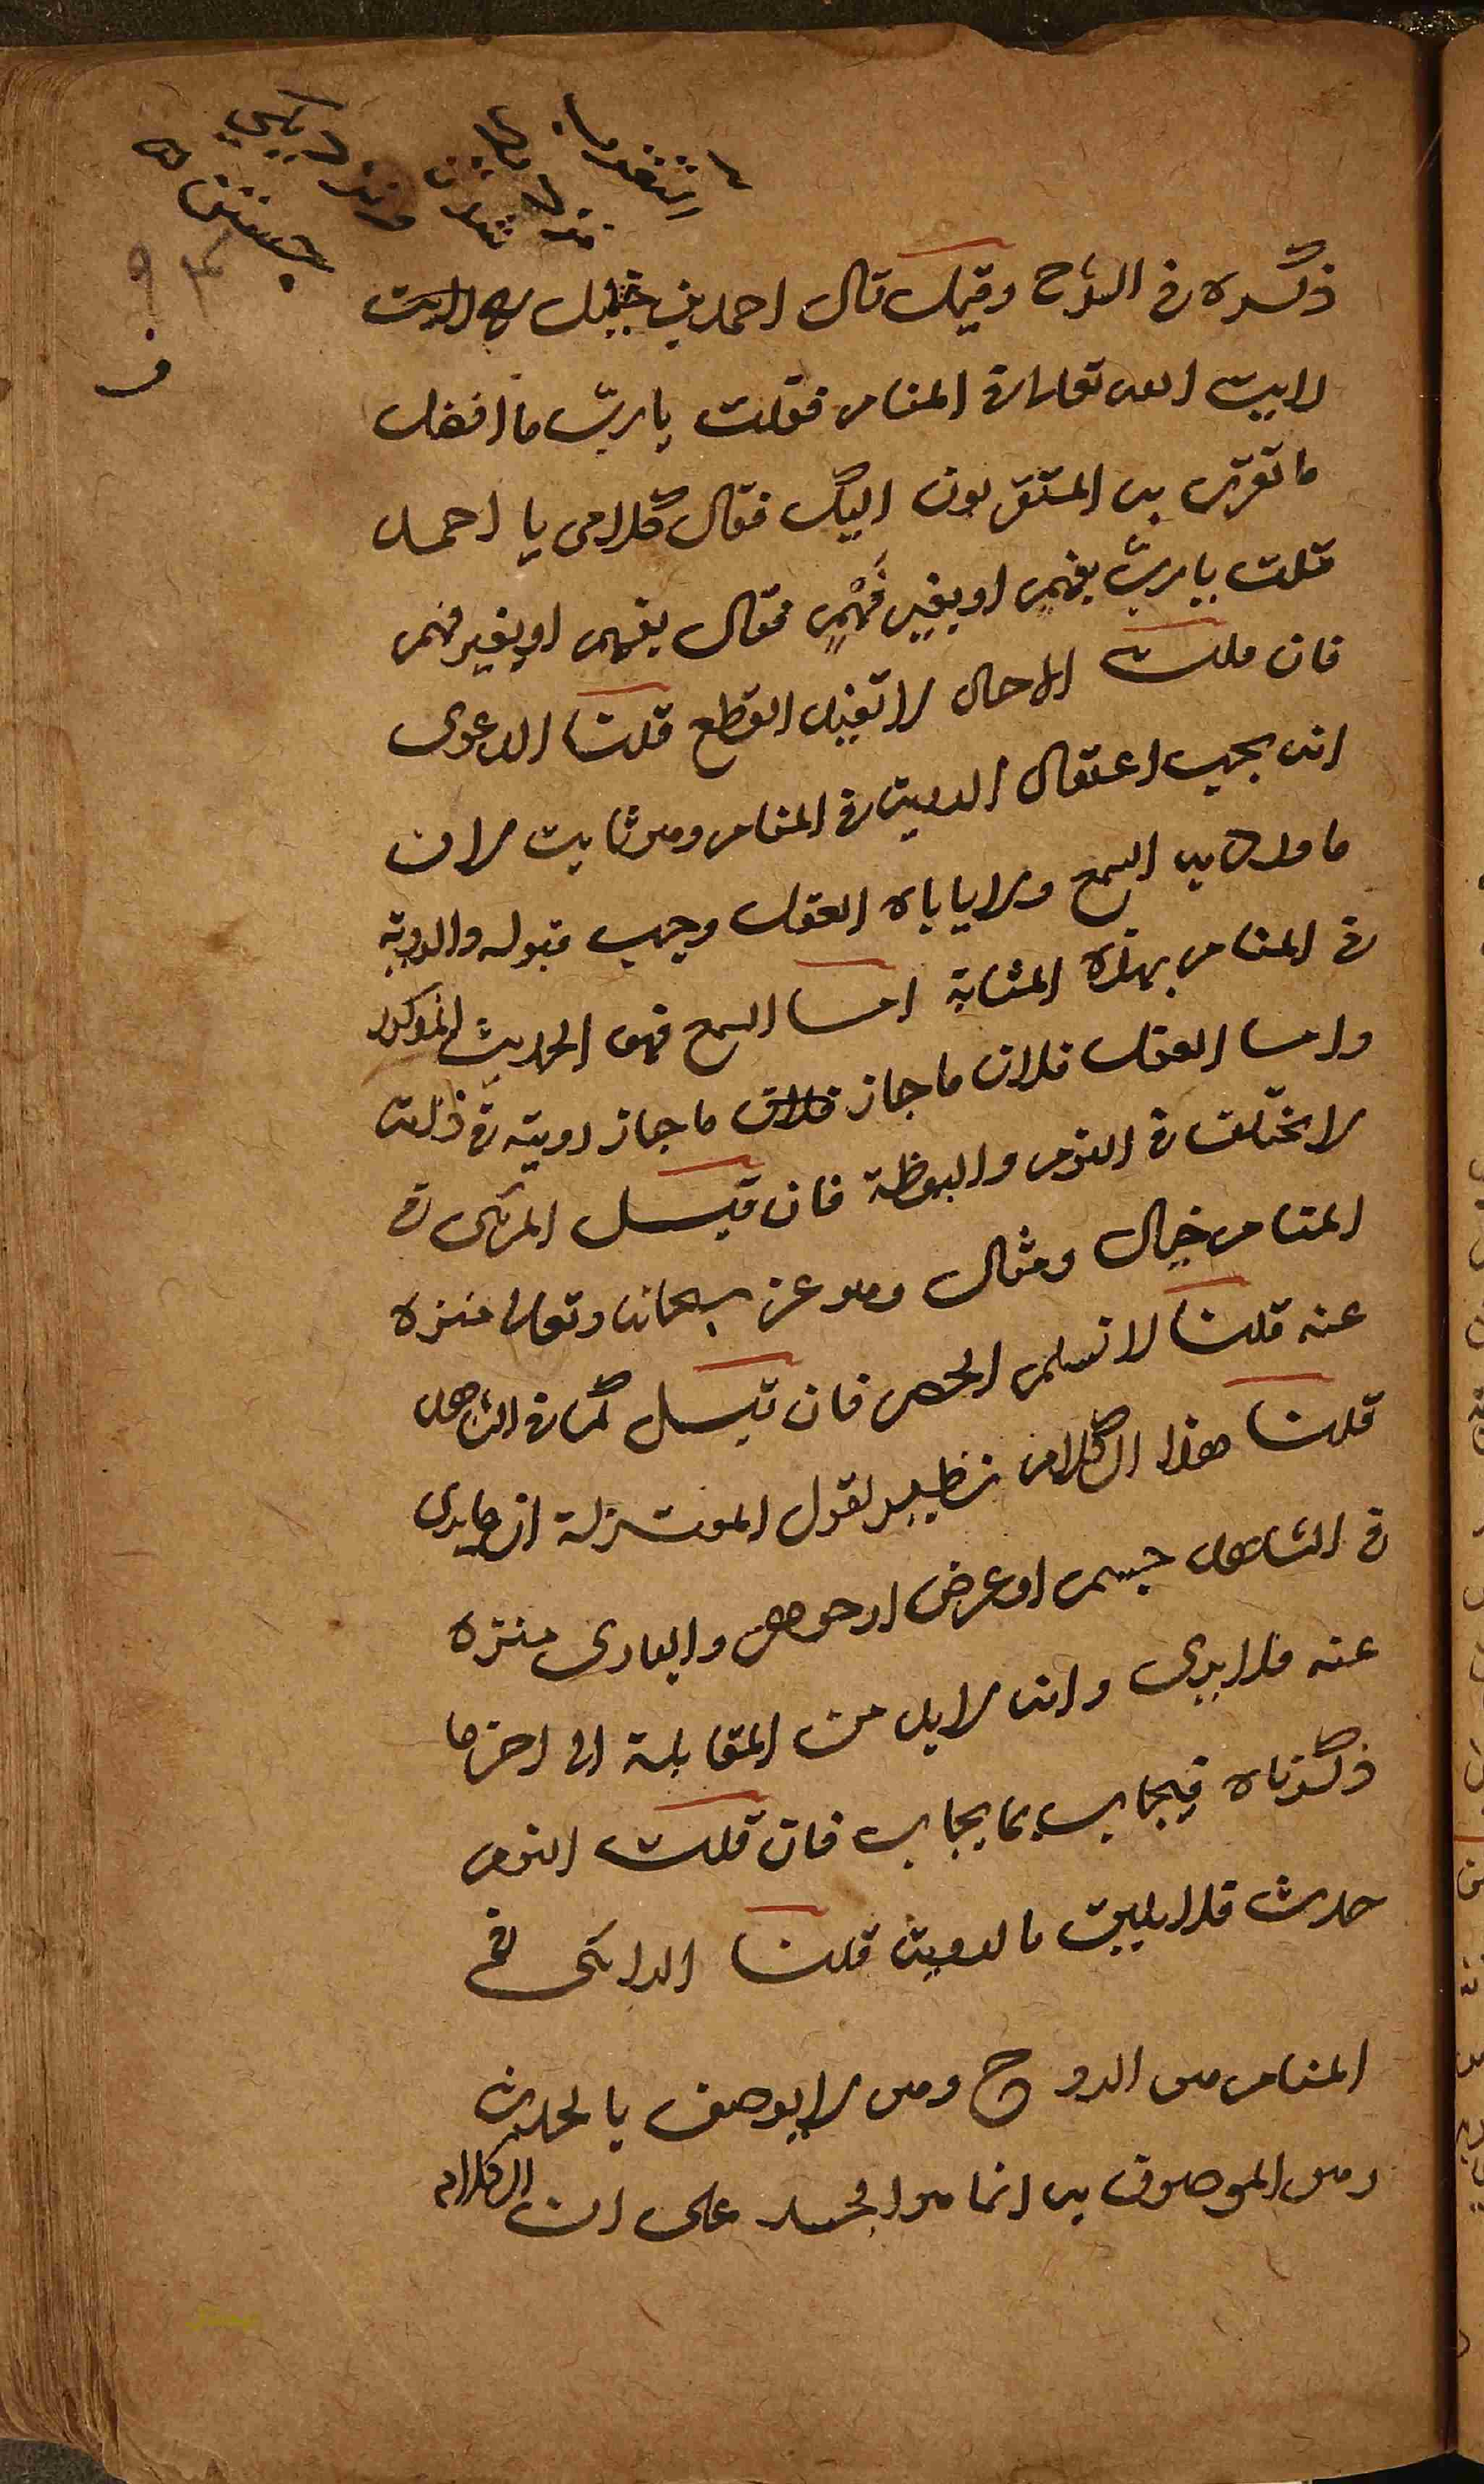 استغفرها
نزديكي
جستن
٩٤
ف
ذكره في الشرح وقيل قال احمد بن حنبل رح رايت
رايت الله تعالى في المنام فقلت يا ربّ ما افضل
ما تقرب به المتقربون اليك فقال كلامى يا احمد
قلت يا ربّ بفهمٍ او بغير فَهْمٍ فقال بفهم او بغير فهم
فان قلت الاحاد لا تفيد القطع قلنا الدعوى
انه يجب اعتقاد الروية في المنام وهو ثابت لان
ما ورد به السمع ولا ياباه العقل وجب قبوله والروية
في المنام بهذه المثابة اما السمع فهو الحديث المذكور
واما العقل فلان ما جاز فلان ما جاز رويته في ذاته
لا يختلف في النوم واليقظة فان قيل المرئى في
المنام خيال ومثال وهو عز سبحانه وتعالى منزه
عنه قلنا لا نسلم الحصر فان قيل كما في الشاهد
قلنا هذا الكلام نظير لقول المعتزلة ان ما يرى
في الشاهد جسم او عرض او جوهر والبارى منزه
عنه فلا يرى وانه لا بد من المقابلة الى اخر ما
ذكرناه فيجاب بما يجاب فان قلت النوم
حدث فلا يليق بالروية قلنا الرائى في
المنام هو الروح وهو لا يوصف بالحدث
وهو الموصوف به انما هو الجسد على ان الكلام